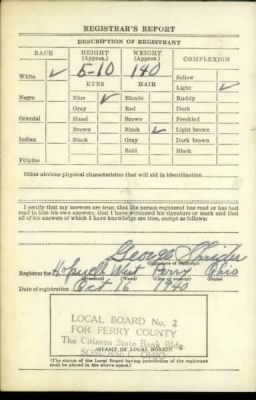 REGISTRAR'S REPORT
DESCRIPTION OF REGISTRANT
RACE HEIGHT (Approx.) WEIGHT (Approx.) COMPLEXION
White ✓ 5-10 140 Sallow
EYES HAIR Light ✓
Negro Blue ✓ Blonde Ruddy
Gray Red Dark
Oriental Hazel Brown Freckled
Brown Black ✓ Light brown
Indian Black Gray Dark brown
Bald Black
Filipino
Other obvious physical characteristics that will aid in identification
I certify that my answers are true; that the person registered has read or has had
read to him his own answers; that I have witnessed his signature or mark and that
all of his answers of which I have knowledge are true, except as follows:
George
Registrar for West Perry Ohio
Date of registration Oct 16 1940
LOCAL BOARD No. 2
FOR PERRY COUNTY
The Citizens State Bank Bldg.
SOMERSET, OHIO
(STAMP OF LOCAL BOARD)
(The stamp of the Local Board having jurisdiction of the registrant
shall be placed in the above space.)